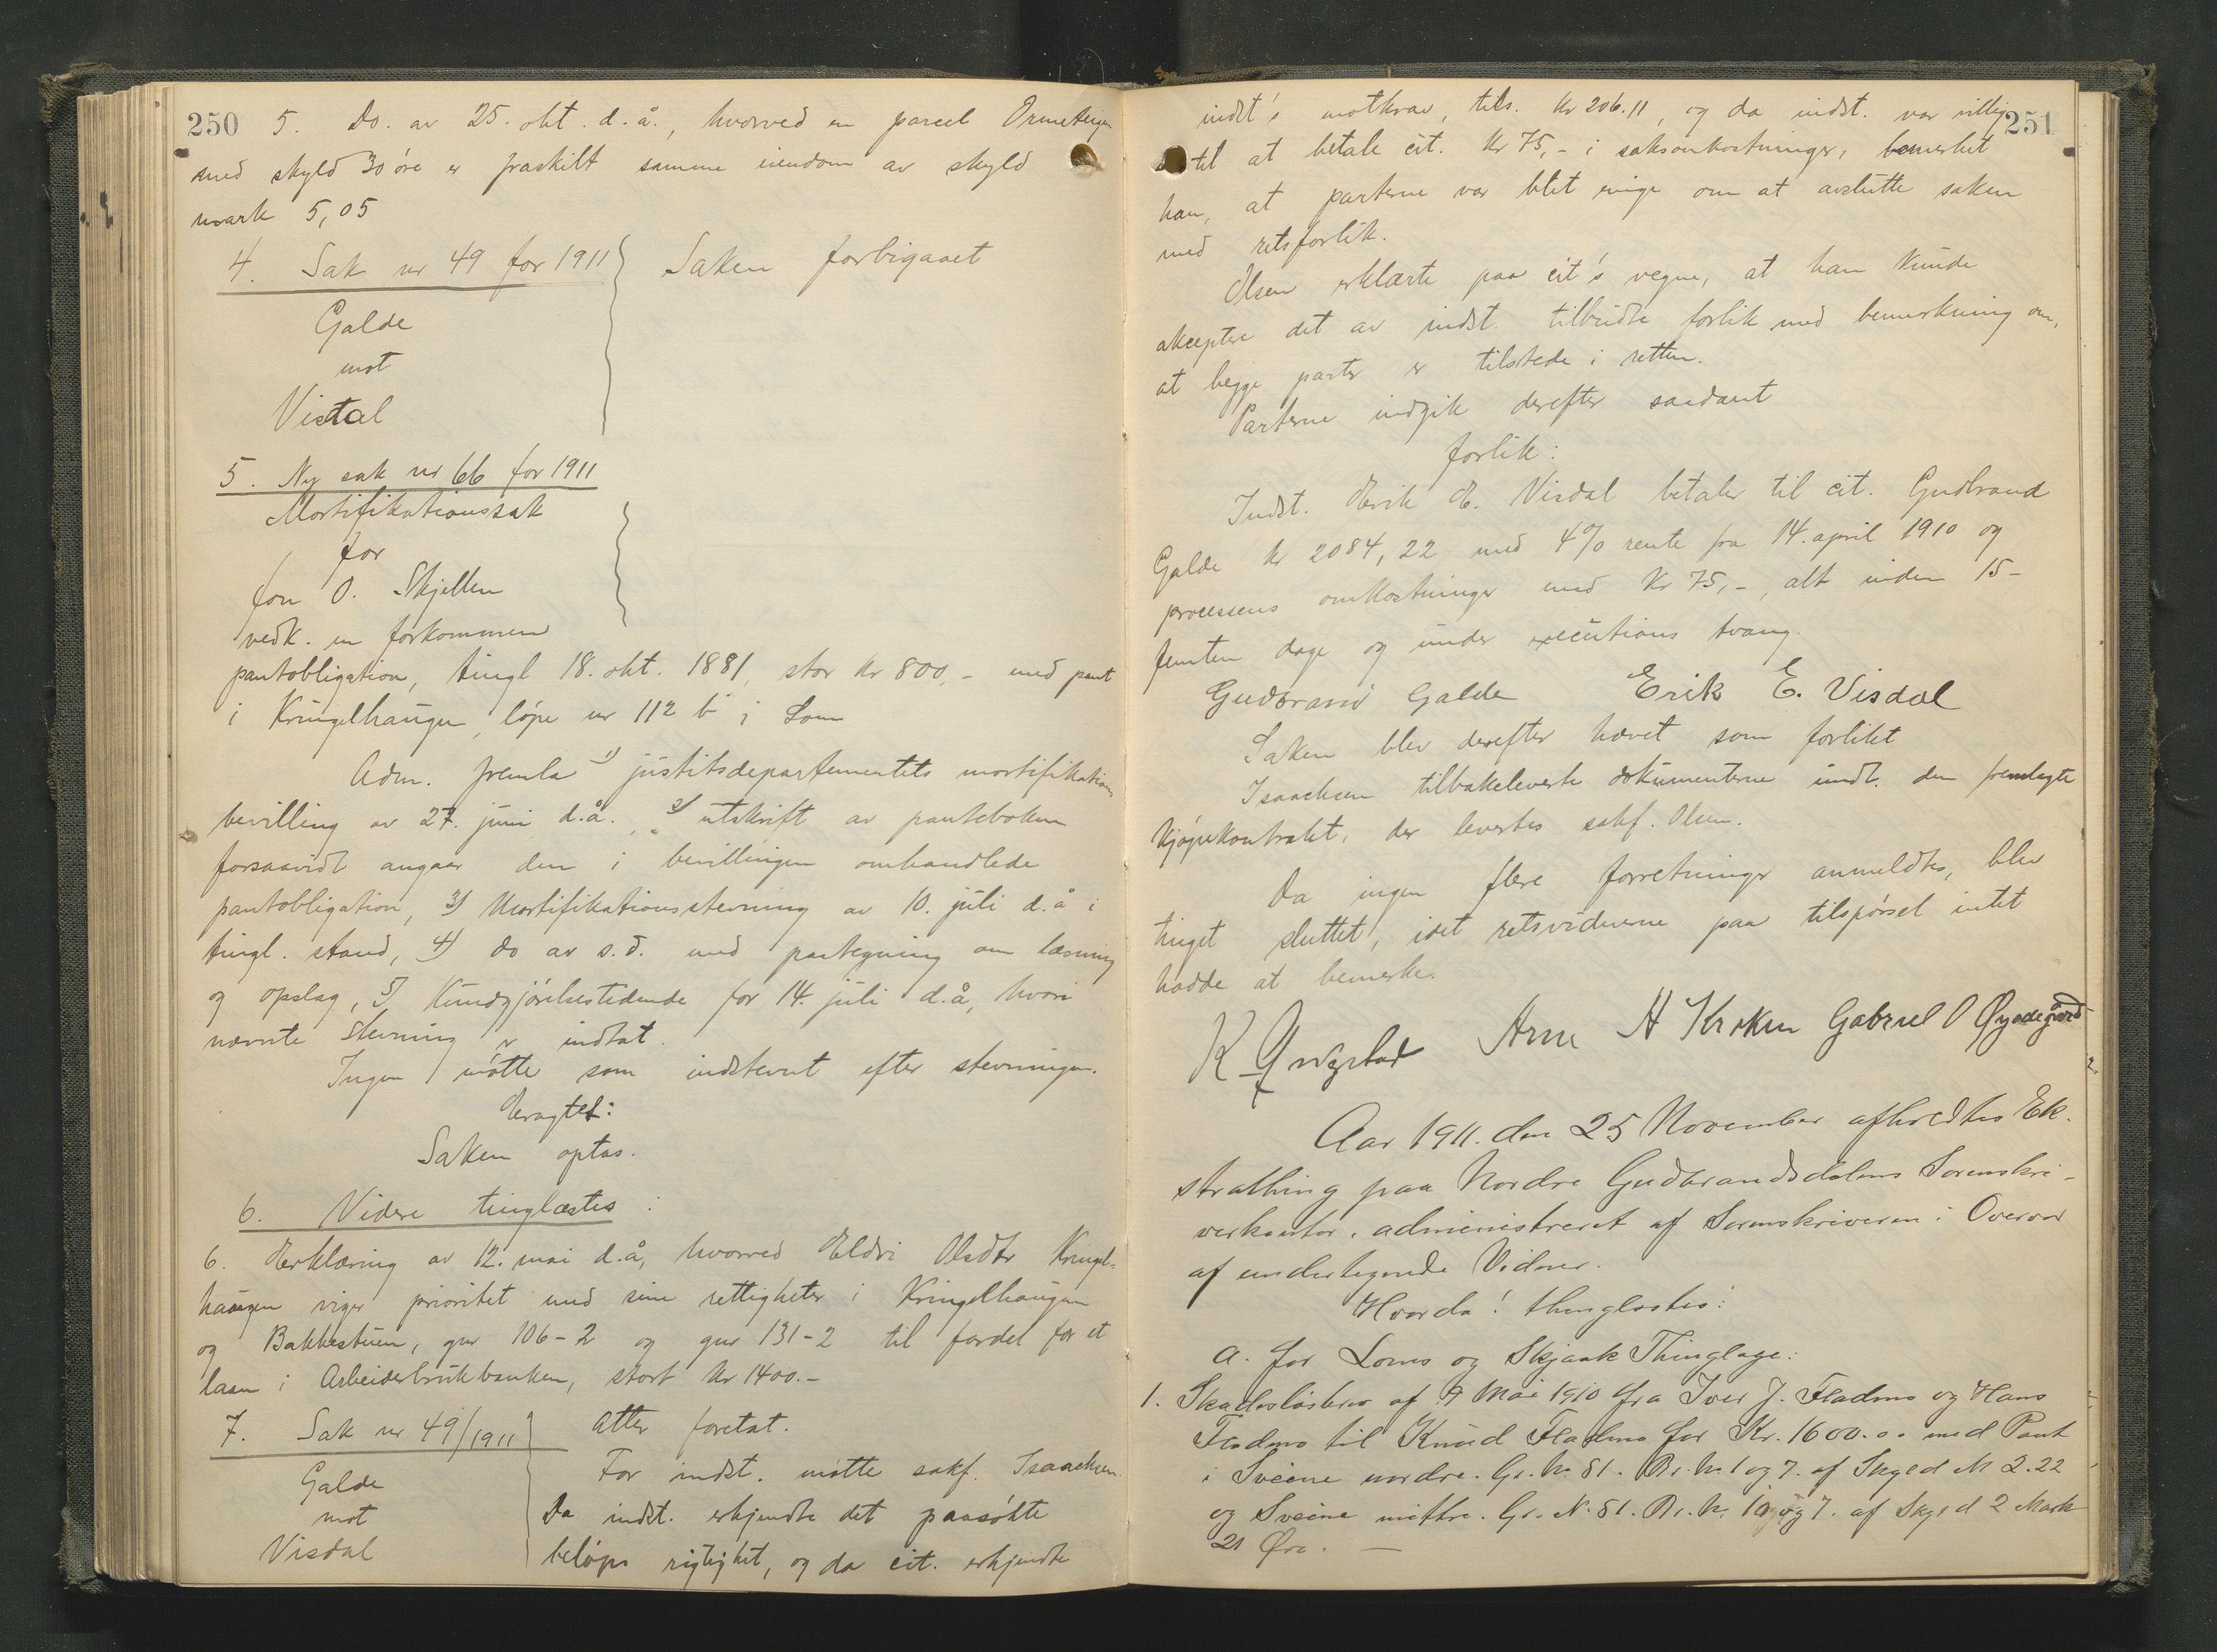 250
5. Do. av 25. okt. d.å., hvorved en parcel Ormeteigen
med skyld 30 øre er fraskilt samme eiendom av skyld
mark 5,05
4. Sak nr 49 for 1911 Saken forbigaaet
Galde
mot
Visdal
5. Ny sak nr 66 for 1911
Mortifikationssak
for
Jon O. Skjellum
vedk. en forkommen
pantobligation, tingl 18. okt. 1881, stor kr 800,- med pant
i Kringelhaugen, løpe nr 112 b i Lom
Adm. fremla 1) justitsdepartementets mortifikations
bevilling av 27. juni d.å., 2) utskrift av panteboken
forsaavidt angaar den i bevillingen omhandlede
pantobligation, 3) Mortifikationsstevning av 10. juli d.å i
tingl. stand, 4) do av s.d. med paategning om læsning
og opslag, 5) Kundgjørelsestidende for 14. juli d.å, hvori
nævnte stevning er indtat.
Ingen møtte som indstevnt efter stevningen.
Eragtet:
Saken optas.
6. Videre tinglæstes:
6. Erklæring av 12. mai d.å, hvorved Eldri Olsdtr Kringel-
haugen viger prioritet med sine rettigheter i Kringelhaugen
og Bakkestuen, gnr 106-2 og gnr 131-2 til fordel for et
laan i Arbeiderbrukbanken, stort kr 1400.-
7. Sak nr 49/1911 Atter foretat.
Galde
mot
Visdal
For indst. møtte sakf. Isaachsen.
Da indst. erkjendte det paasøkte
beløps rigtighet, og da cit. erkjendte
251
indst's motkrav, tils. kr 206.11, og da indst. var villig
til at betale cit. kr 75,- i saksomkostninger, bemerket
han, at parterne var blit enige om at avslutte saken
med retsforlik.
Olsen erklærte paa cit's vegne, at han kunde
akceptere det av indst. tilbudte forlik med bemerkning om,
at begge parter er tilstede i retten.
Parterne indgik derefter saadant
forlik:
Indst. Erik E. Visdal betaler til cit. Gudbrand
Galde kr 2084,22 med 4% rente fra 14. april 1910 og
processens omkostninger med kr 75,-, alt inden 15-
femten dage og under executions tvang.
Gudbrand Galde Erik E. Visdal
Saken blev derefter hævet som forlikt
Isaachsen tilbakeleverte dokumenterne undt. den fremlagte
kjøpekontrakt, der levertes sakf. Olsen.
Da ingen flere forretninger anmeldtes, blev
tinget sluttet, idet retsvidnerne paa tilspørsel intet
hadde at bemerke.
Arne H Kroken Gabriel O Øyadegård
Aar 1911. den 25 November afholdtes Ek-
strathing paa Nordre Gudbrandsdalens Sorenskri-
verkontor, administreret af Sorenskriveren i Overvær
af undertegnede Vidner.
Hvorda! thinglæstes:
a. for Loms og Skjaak Thinglage:
1. Skadesløsbrev af 9 Mai 1910 fra Iver J. Fladmo og Hans
Fladmo til Knud Fladmo for Kr. 1600.00 med Pant
i Sveine nordre. Gr. No 81. Br. No 1 og 7. af Skyld M 2.22
og Sveine mittre. Gr. N. 81. Br. No og 7. af Skyld 2 Mark
21 Øre. —